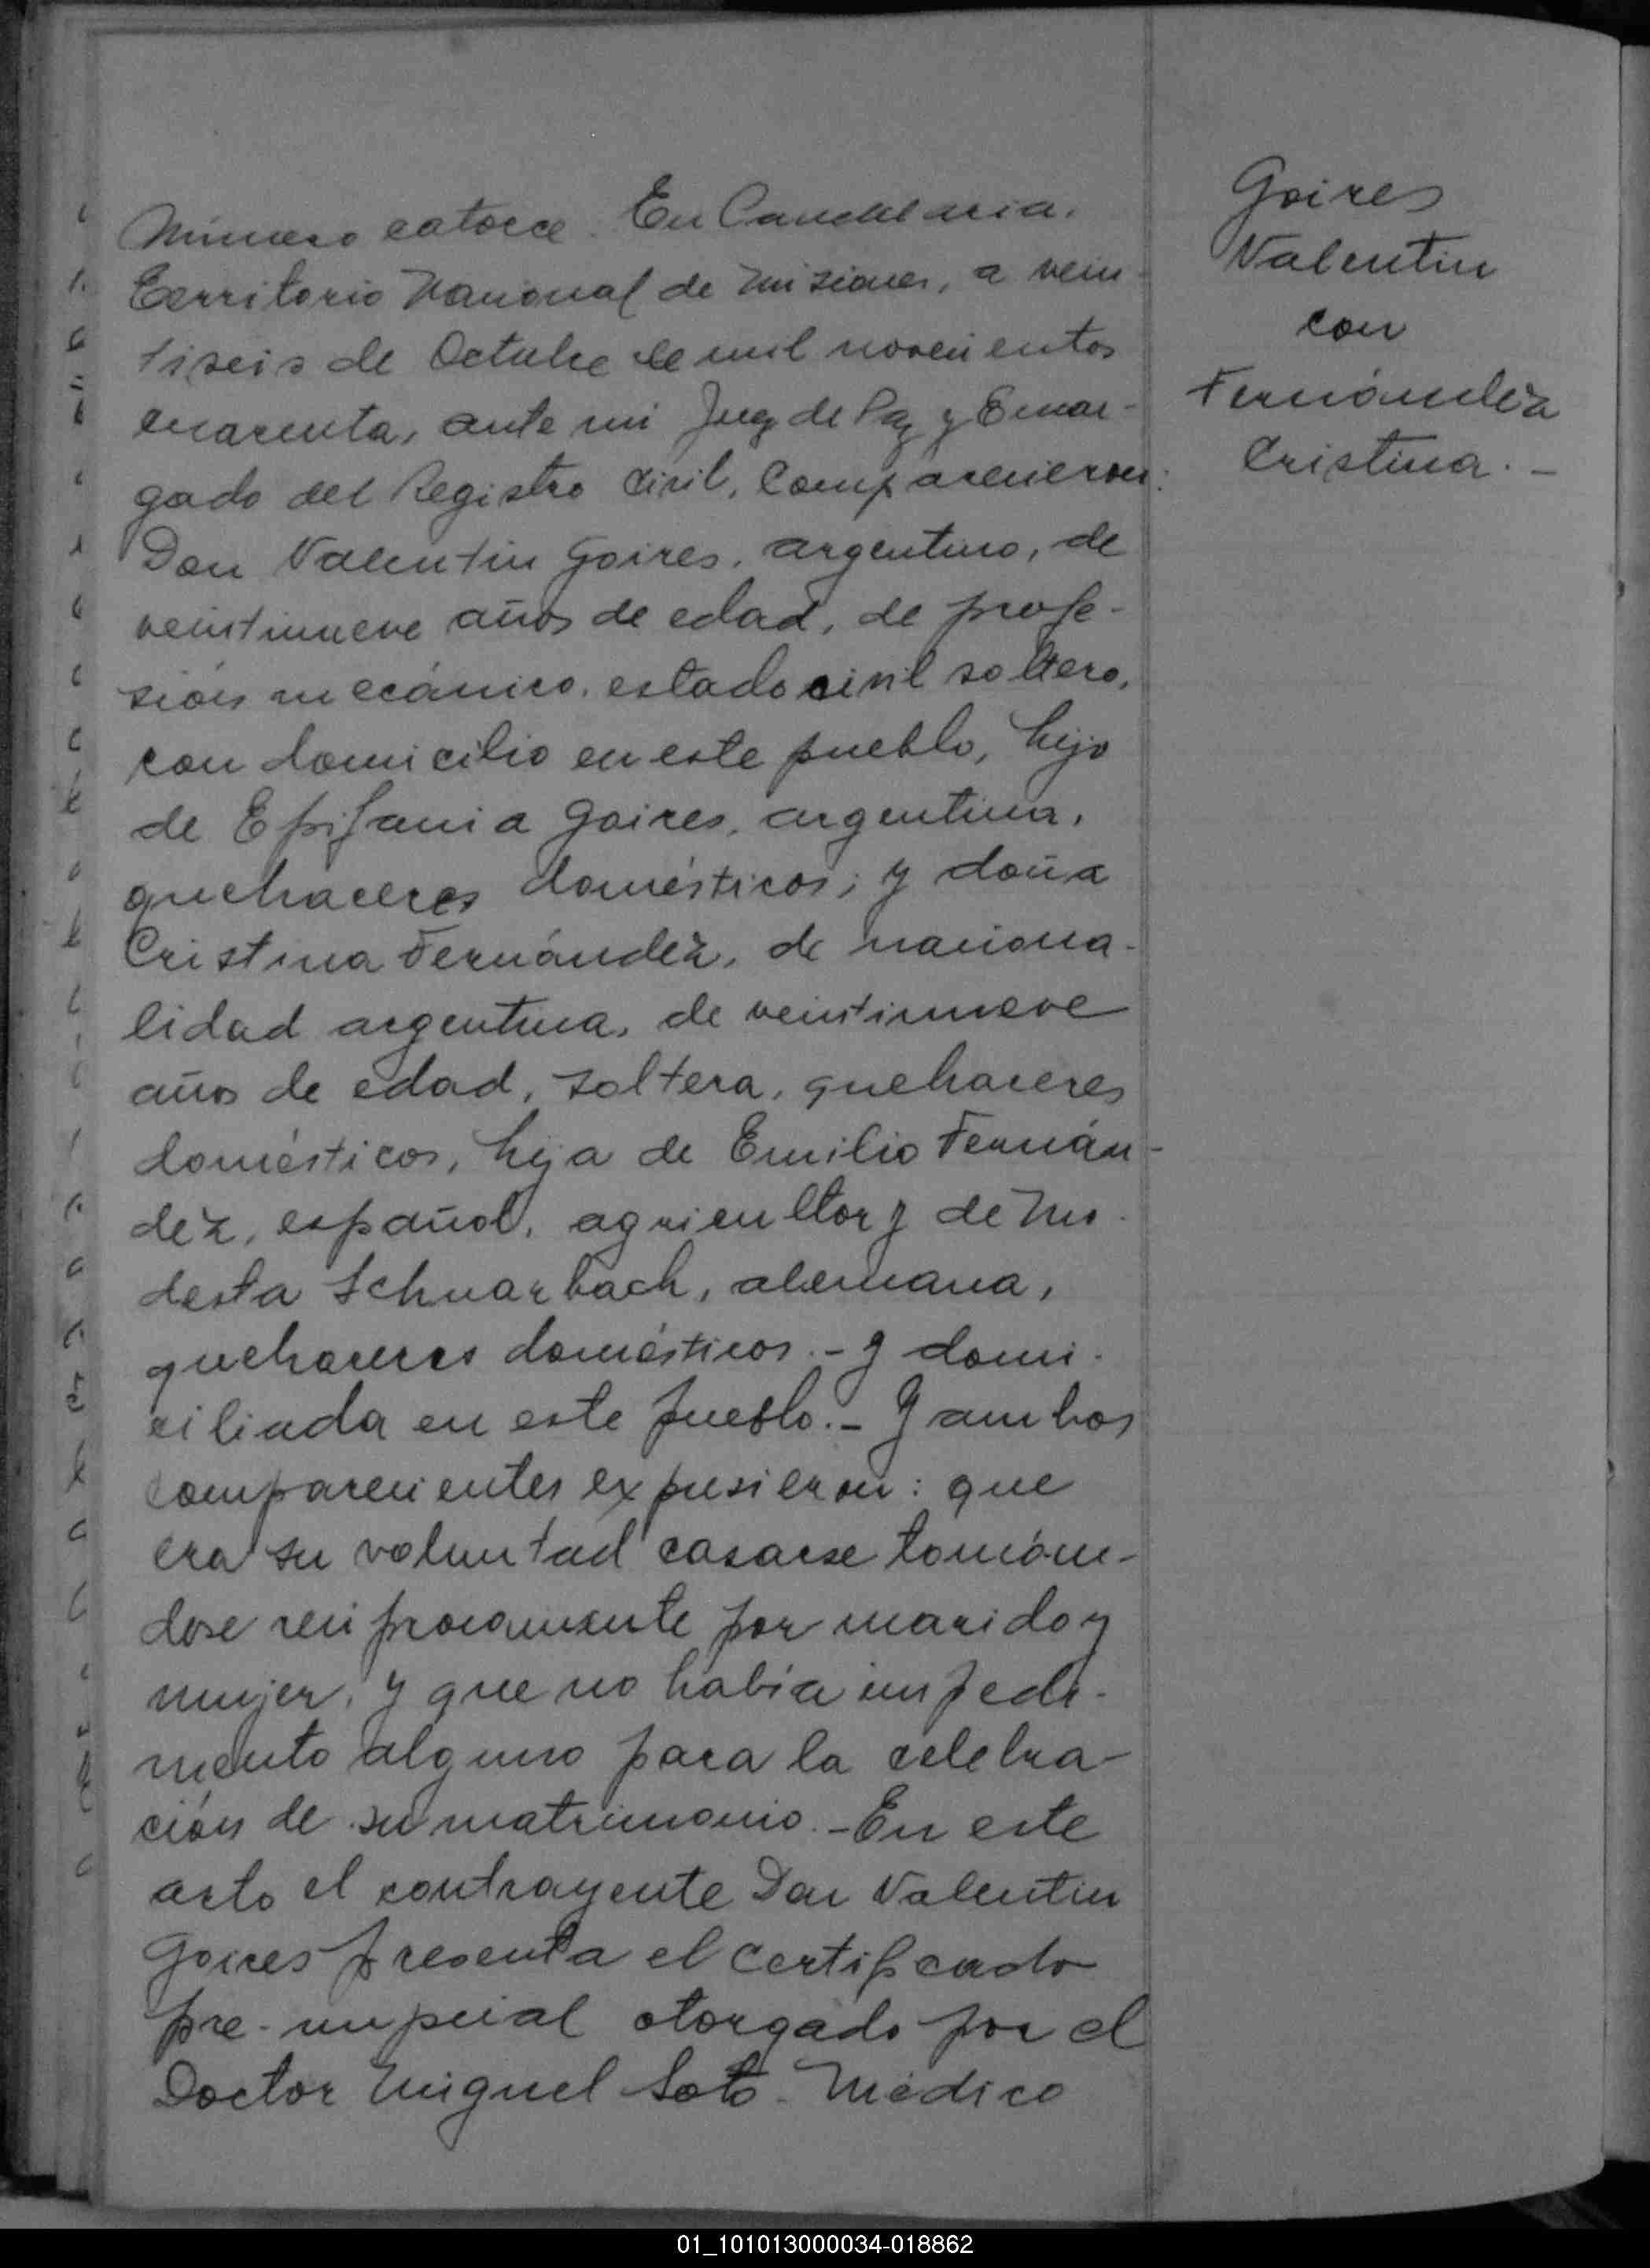 Número catorce. En Candelaria,
Territorio Nacional de Misiones, a vein-
tiseis de Octubre de mil novecientos
cuarenta, ante mi Juez de Paz y Encar-
gado del Registro Civil, Comparecieron:
Don Valentin Goires, argentino, de
veintinueve años de edad, de profe-
sión mecánico, estado civil soltero,
con domicilio en este pueblo, hijo
de Epifania Goires, argentina,
quehaceres domésticos; y doña
Cristina Fernández, de naciona-
lidad argentina, de veintinueve
años de edad, soltera, quehaceres
domésticos, hija de Emilio Fernán-
dez, español, agricultor y de Mo-
desta Schwarbach, alemana,
quehaceres domésticos.- y domi-
ciliada en este pueblo.- Y ambos
comparecientes expusieron: que
era su voluntad casarse tomán-
dose reciprocamente por marido y
mujer, y que no había impedi-
mento alguno para la celebra-
ción de su matrimonio.- En este
acto el contrayente Don Valentin
Goires presenta el certificado
pre-nupcial otorgado por el
Doctor Miguel Soto- Médico
Goires
Valentin
con
Fernández
Cristina.-
01_101013000034-018862